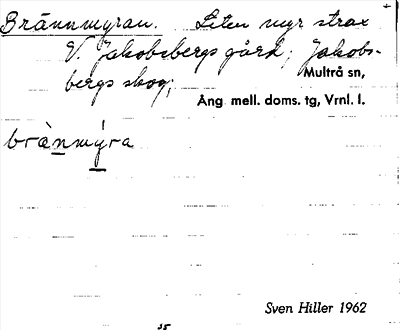 Brännmyran. Liten myr strax
V. Jakobsbergs gård; Jakobs-
bergs skog;
Multrå sn,
Ång mell. doms. tg, Vrnl. l.
brànmýra
Sven Hiller 1962
35